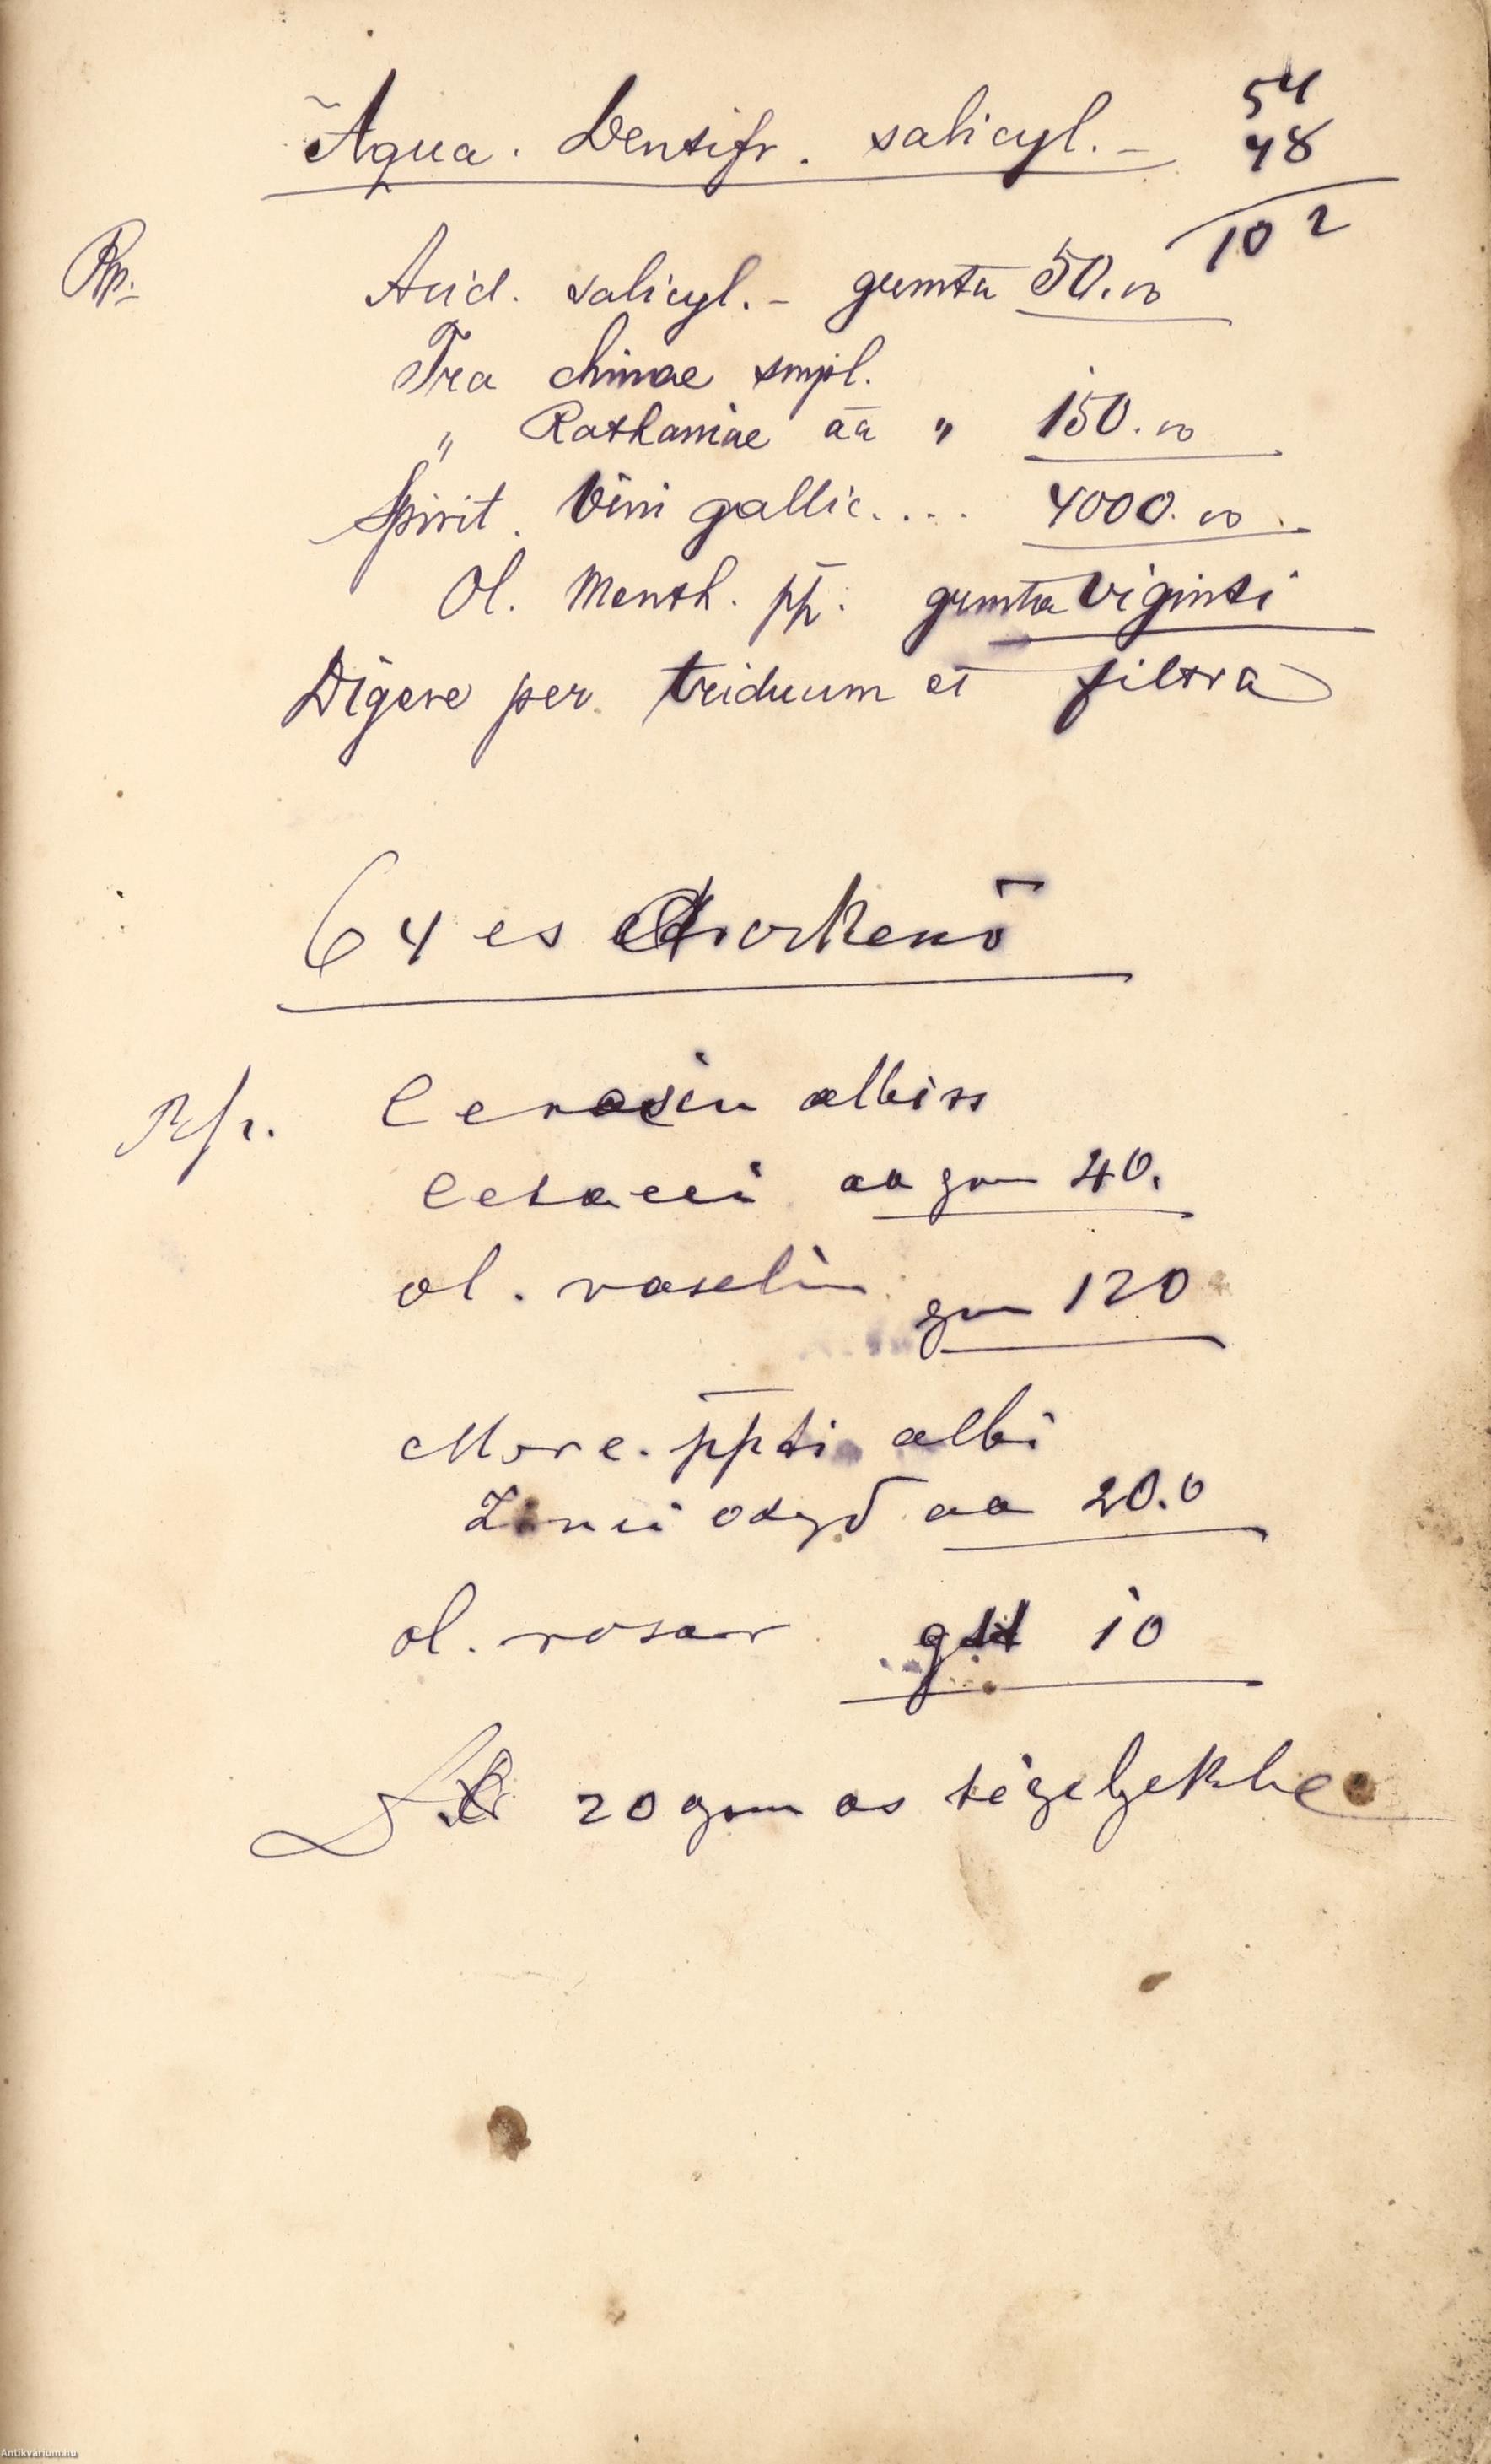 Aqua. Dentifr. salicyl. –
54
48
102
Rp.
Acid. salicyl. – gumta 50.00
Tra chinae smpl.
" Rathaniae aa " 150.00
Spirit. Vini gallic.... 4000.00
Ol. Menth. pp. gumta viginti
Digere per triduum et filtra
64 es arkenő
Rp.
Cerasin albiss
Cetacei aa gm 40.
ol. vaselin gm 120
Merc. ppti albi
Zinci oxyd aa 20.0
ol. rosar gtt 10
20 gm os tégelyekbe
Antikvarium.hu